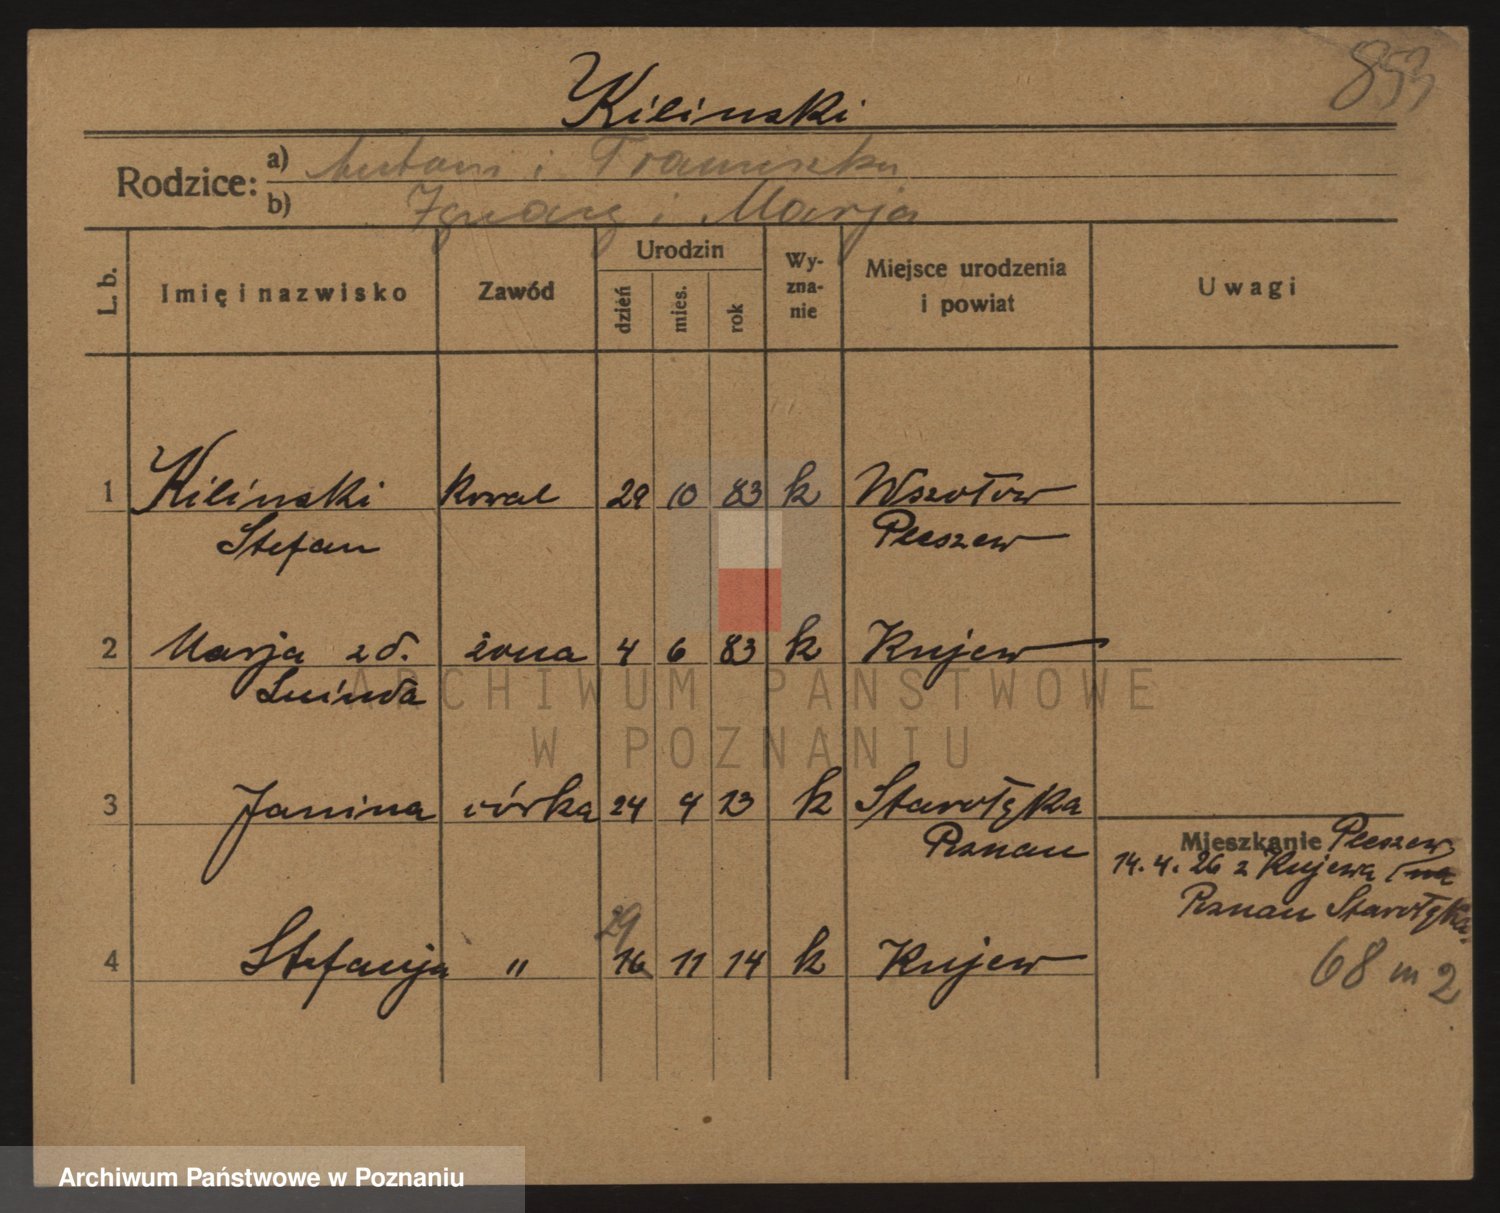 853
Kilinski
Rodzice: a) Antoni i Franciszka
b) Ignacy i Marja
L. b. Imię i nazwisko Zawód Urodzin dzień mies. rok Wyznanie Miejsce urodzenia i powiat Uwagi
1 Kilinski kowal 29 10 83 k Wszołow
Stefan Pleszew
2 Marja zd. żona 4 6 83 k Kujew
3 Janina córka 24 4 13 k Starołęka
Poznan
Mieszkanie Pleszew
14. 4. 26 z Kujewa
Poznan Starołęka
29
4 Stefanja " 16 11 14 k Kujew
68 m 2
ARCHIWUM PAŃSTWOWE
W POZNANIU
Archiwum Państwowe w Poznaniu